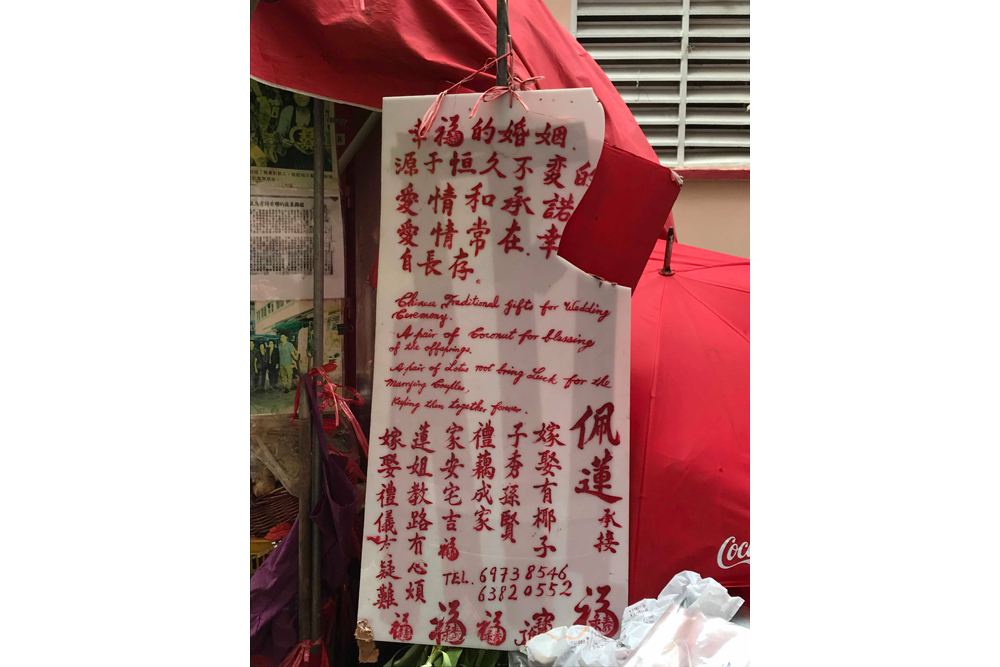 幸福的婚姻.
源于恒久不变的
愛情和承諾
愛情常在.幸
自長存。
Chinese Traditional gifts for Wedding
Ceremony.
A pair of Coconut for blessing
of the offsprings.
A pair of Lotus root bring Luck for the
Marrying Couples,
Keeping them together forever.
佩蓮承接
嫁娶有椰子
子秀孫賢
禮藕成家
家安宅吉福
蓮姐教路有心煩
嫁娶禮儀去疑難
TEL. 69738546
63820552
福
福
福
福
Coc